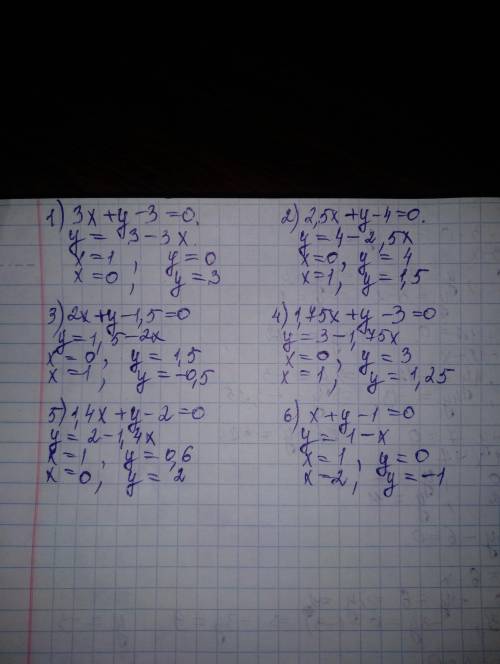 1) 3x+y-3=0.
y= 3-3x.
x=1, y=0
x=0, y=3
2) 2,5x+y-4=0.
y=4-2,5x
x=0, y=4
x=1, y=1,5
3) 2x+y-1,5=0
y=1,5-2x
x=0, y=1,5
x=1, y=-0,5
4) 1,75x+y-3=0
y=3-1,75x
x=0, y=3
x=1, y=1,25
5) 1,4x+y-2=0
y=2-1,4x
x=1, y=0,6
x=0, y=2
6) x+y-1=0
y=1-x
x=1, y=0
x-2, y=-1